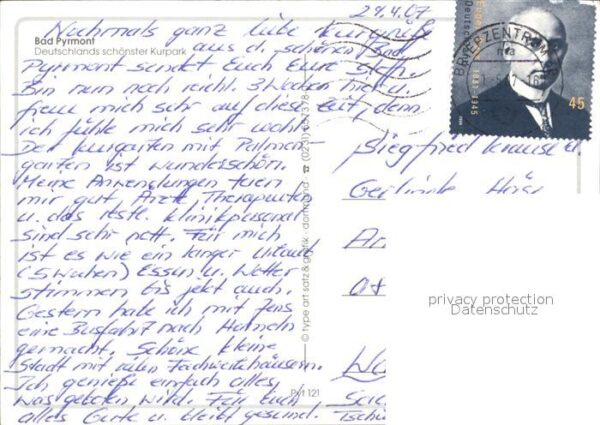 29.4.07
Nochmals ganz liebe Kurgrüße
Bad Pyrmont
Deutschlands schönster Kurpark
aus d. schönen Bad
Pyrmont sendet Euch Eure
Bin nun noch reichl. 3 Wochen hier u.
freue mich sehr auf diese Zeit, denn
ich fühle mich sehr wohl.
Der Kurgarten mit Palmen-
garten ist wunderschön.
Meine Anwendungen tuen
mir gut. Ärzte, Therapeuten
u. das restl. Klinikpersonal
sind sehr nett. Für mich
ist es wie ein langer Urlaub
(5 Wochen) Essen u. Wetter
stimmen bis jetzt auch.
Gestern habe ich mit Jens
eine Busfahrt nach Hameln
gemacht. Schöne kleine
Stadt mit vielen Fachwerkhäusern.
Ich genieße einfach alles,
was geboten wird. Für Euch
alles Gute u. bleibt gesund. Tschü
© type art satz & grafik · dortmund · ☎
Pyrt 121
BRIEFZENTRUM
45
Siegfried Krause u.
Gerlinde
privacy protection
Datenschutz